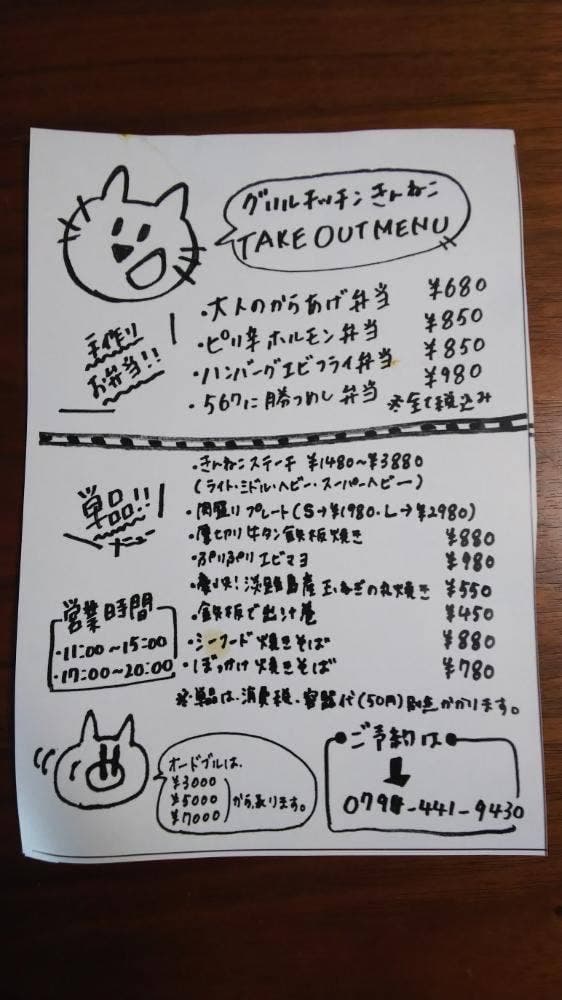 グリルキッチン きんねこ
TAKE OUT MENU
手作り
お弁当!!
・大人のからあげ弁当 ¥680
・ピリ辛ホルモン弁当 ¥850
・ハンバーグエビフライ弁当 ¥850
・567に勝つめし弁当 ¥980
※全て税込み
単品!!
メニュー
・きんねこステーキ ¥1480〜¥3880
(ライト・ミドル・ヘビー・スーパーヘビー)
・肉盛りプレート(S→¥1980・L→¥2980)
・厚切り牛タン鉄板焼き ¥880
・ぷりぷりエビマヨ ¥980
淡路島産玉ねぎの丸焼き ¥550
・鉄板で出し巻 ¥450
・シーフード焼きそば ¥880
・ぼっかけ焼きそば ¥780
※単品は、消費税、容器代(50円)別途かかります。
営業時間
・11:00〜15:00
・17:00〜20:00
オードブルは、
¥3000
¥5000
¥7000
から承ります。
ご予約は
079-441-9430